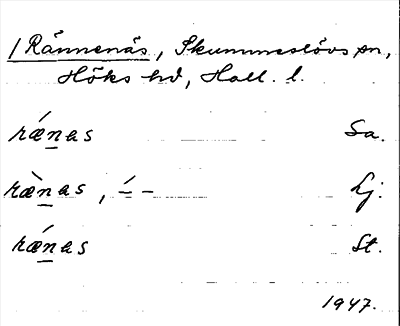 /Rännenäs, Skummeslövs sn,
Höks hd, Hall. l.
rǽnas Sa.
ræ̀nas, ´– – Lj.
rǽnas St.
1947.